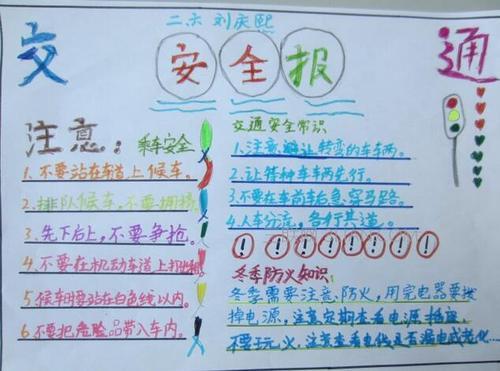 二六 刘庆熙
交 安全报 通
注意：乘车安全
1、不要站在车道上候车。
2、排队候车，不要拥挤。
3、先下后上，不要争抢。
4、不要在机动车道上打出租
5、候车时要站在白色线以内。
6、不要把危险品带入车内。
交通安全常识
1、注意避让转弯的车车两。
2、让特种车车两先行。
3、不要在车前车后急穿马路。
4、人车分流，各行其道。
！！！！！！！！！
冬季防火知识：
冬季需要注意、防火，用完电器要拔
掉电源，注意定期查看电源插座，
不要玩火，注意查看电线是否漏电或老化…